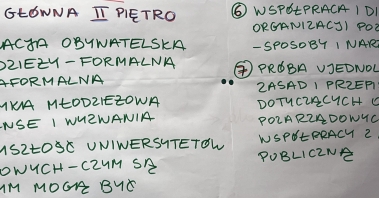 GŁÓWNA II PIĘTRO
ACJA OBYWATELSKA
DZIEŻY - FORMALNA
AFORMALNA
YKA MŁODZIEŻOWA
NSE I WYZWANIA
YSZŁOŚĆ UNIWERSYTETÓW
OWYCH - CZYM SĄ
YM MOGĄ BYĆ
⑥ WSPÓŁPRACA I DI
ORGANIZACJI POZ
- SPOSOBY I NARZ
⑦ PRÓBA UJEDNOL
ZASAD I PRZEPI
DOTYCZĄCYCH
POZARZĄDOWYC
WSPÓŁPRACY Z
PUBLICZNĄ